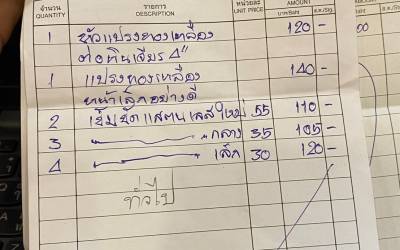 จำนวน รายการ หน่วยละ AMOUNT
QUANTITY DESCRIPTION UNIT PRICE บาท/Baht ส.ต./Stg.
1 หัวแปรงทองเหลือง 120 -
ต่อหินเจียร 4"
1 แปรงทองเหลือง 140 -
หน้าเล็กอย่างดี
2 เข็มขัดแสตนเลสใหญ่ 55 110 -
3 กลาง 35 105 -
4 เล็ก 30 120 -
ทั่วไป